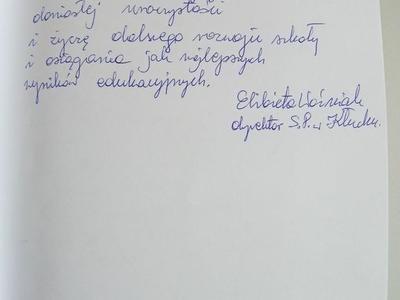 doniosłej uroczystości
i życzę dalszego rozwoju szkoły
i osiągania jak najlepszych
wyników edukacyjnych.
Elżbieta Woźniak
dyrektor S.P. w Kłucku.